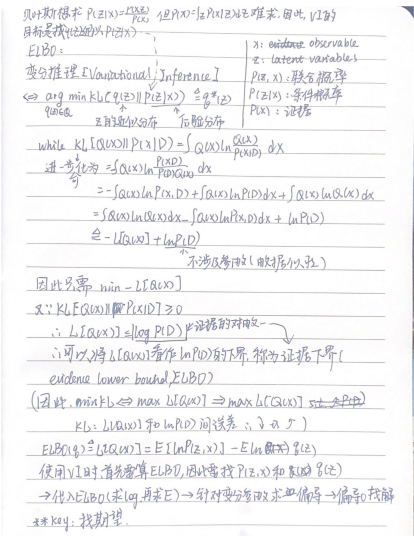 贝叶斯很求 P(Z|X)=P(X,Z)/P(X), 但P(X)=∫P(X|Z)P(Z)dz 难求, 因此, VI的
目标是找q(z)近似P(Z|X).
ELBO:
变分推理 [Variational Inference]
⇔ arg min KL(q(z)||P(z|x)) ≜ q*(z)
q(z)∈Q
z的近似分布 后验分布
x: evidence observable
z: latent variables
P(z,x): 联合概率
P(z|x): 条件概率
P(x): 证据
while KL[Q(x)||P(x|D)] = ∫Q(x)ln Q(x)/P(x|D) dx
进一步化为 = -∫Q(x)ln P(x,D)/P(D)Q(x) dx
= -∫Q(x)lnP(x,D)+∫Q(x)lnP(D)dx+∫Q(x)lnQ(x)dx
= ∫Q(x)lnQ(x)dx-∫Q(x)lnP(x,D)dx + lnP(D)
≜ -L[Q(x)] + lnP(D)
不涉及参数(数据似然)
因此只需 min -L[Q(x)]
又∵ KL[Q(x)||P(x|D)] ≥ 0
∴ L[Q(x)] ≤ log P(D) 证据的对数
∴可以将L[Q(x)]看作lnP(D)的下界, 称为证据下界(
evidence lower bound, ELBO)
(因此, min KL ⇔ max L[Q(x)] ⇒ max L[Q(x)]
KL: L[Q(x)]和lnP(D)间误差 ∴ ↓ ⇔ ↑)
ELBO(q) ≜ L[Q(x)] = E[lnP(z,x)] - E ln q(z)
使用VI时, 首先要算ELBO, 因此需找P(z,x)和 q(z)
→代入ELBO(求log,再求E)→针对变分参数求偏导→偏导0找解
**key: 找期望.